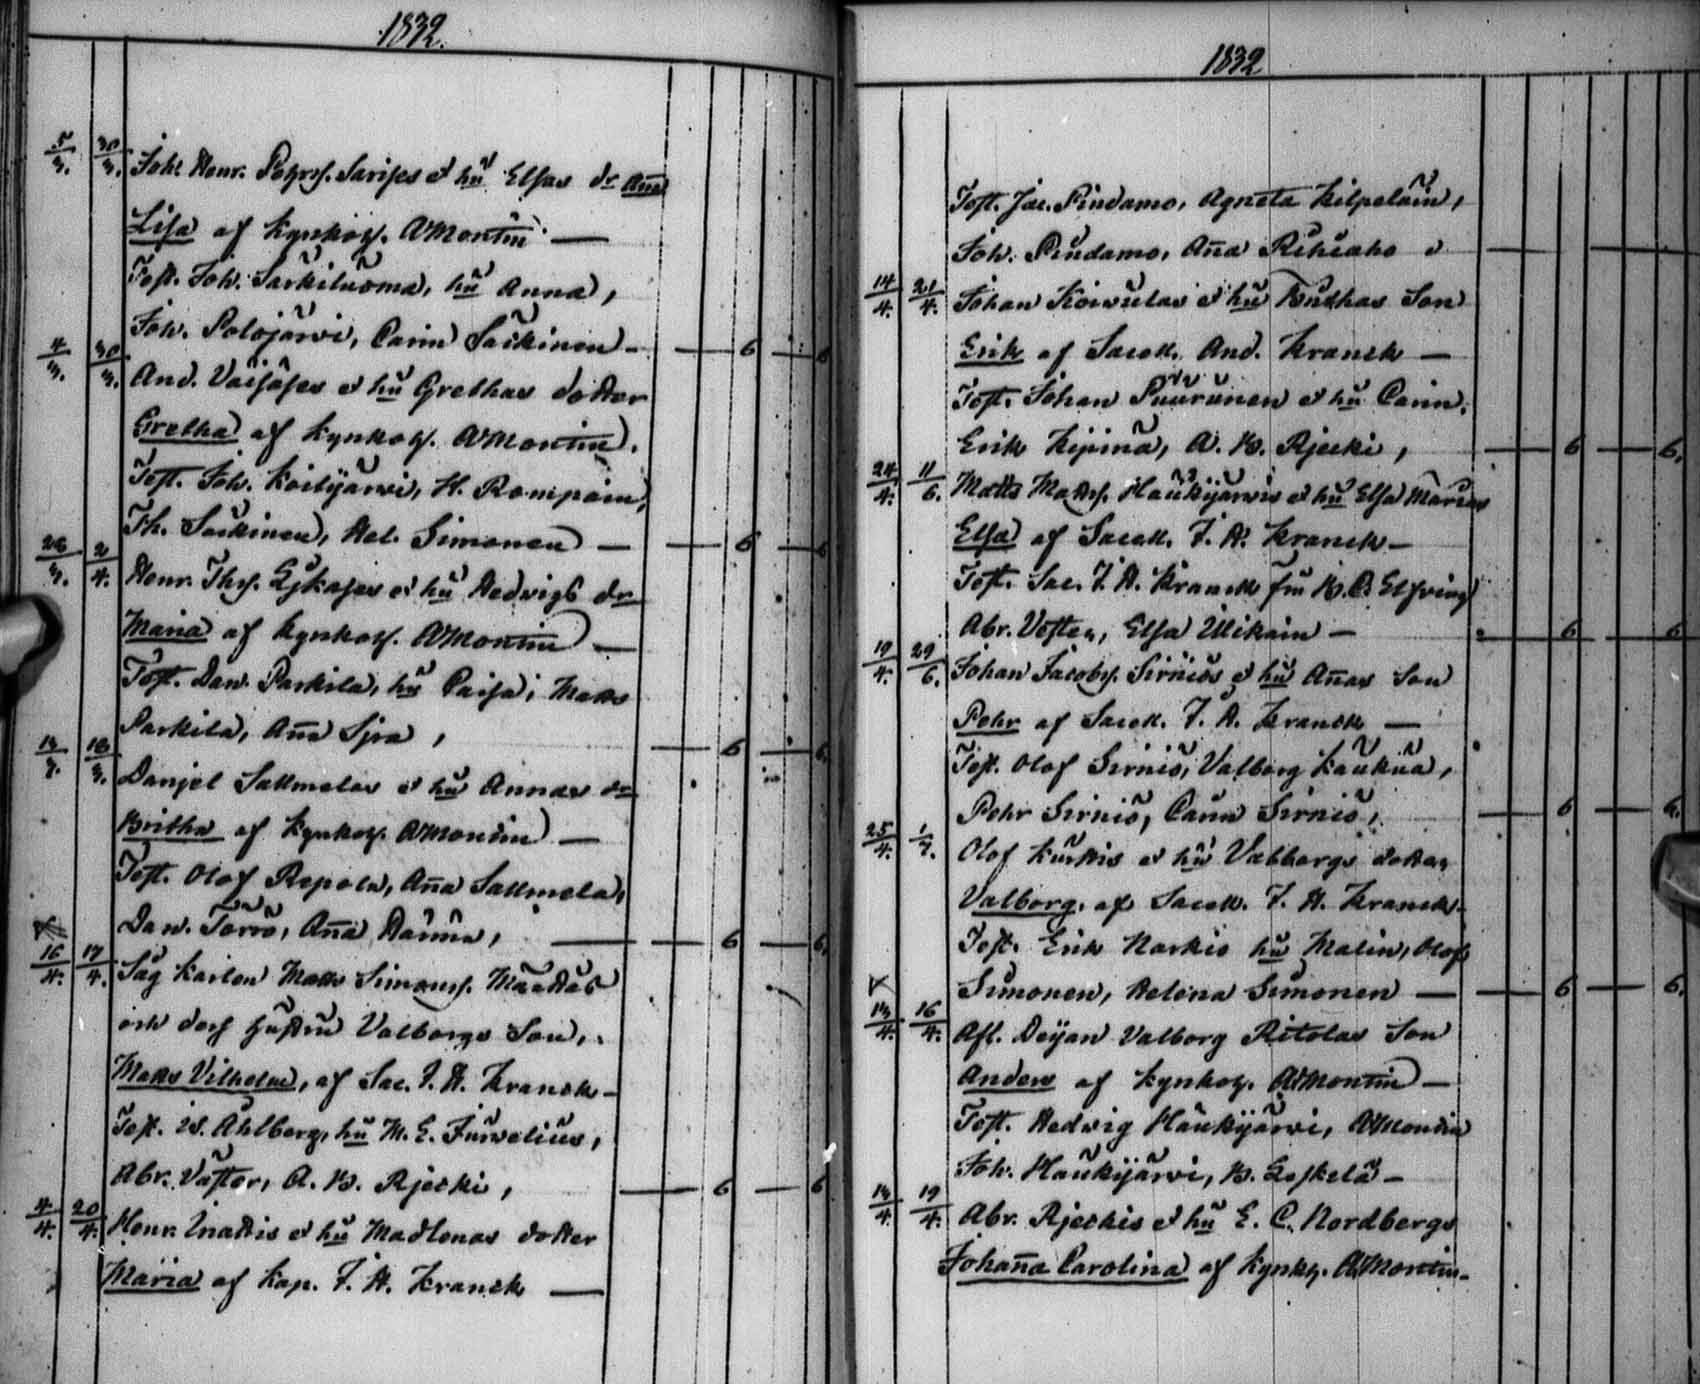 1832.
5/3. 30/3. Joh. Henr. Pehrss. Sarises et hu Elsas dr Aña
Lisa af Kyrkoh. A Montin —
Test. Joh. Särkiluoma, hu Anna,
Joh. Polojärvi, Carin Säikinen — 6 — 6
4/3. 30/3. And. Väisäses et hu Grethas dotter
Gretha af Kyrkoh. A Montin.
Test. Joh. Koilijärvi, H. Rompain,
Th. Säikinen, Hel. Simonen — 6 — 6
26/3. 2/4. Henr. Thss. et hu Hedvigs dr
Maria af Kyrkoh. A Montin —
Test. Dan. Parkila, hu Caisa, Matts
Parkila, Aña Sjra, 6 — 6
18/3. Danjel Sallmelas et hu Annas dr
Britha af Kyrkoh. A Montin —
Test. Olof Repola, Aña Sallmela,
Dan. Törrö, Aña — 6 — 6.
16/4. 17/4. Såg Karlen Matts Simonss.
och dess hustru Valborgs Son,
Matts Vilhelm, af Sac. J. H. Kranck —
Test. Is. Ahlberg, hu M. E. Furvelius,
Abr. Väster, A. B. Rjecki, — 6 — 6
4/4. 20/4. Henr. Inattis et hu Madlenas dotter
Maria af Kap. J. H. Kranck —
1832
Test. Jac. Pindamo, Agneta Kilpeläin,
Joh. Pindamo, Aña Rihiaho
14/4. 21/4. Johan Koivulas et hu Brithas Son
Erik af Sacell. And. Kranck —
Test. Johan Puurunen et hu Carin,
Erik Kipinä, A. B. Rjecki, — 6 — 6.
24/4. 11/6. Matts Matss. Haukijärvis et hu Elsa Marias
Elsa af Sacell. J. H. Kranck —
Test. Sac. J. H. Kranck fru B. C. Elfving
Abr. Vester, Elsa Ulikain — 6 — 6
19/4. 29/6. Johan Jacobss. Sirniös et hu Añas Son
Pehr af Sacell. J. H. Kranck —
Test. Olof Sirniö, Valborg Kaukua,
Pehr Sirniö, Carin Sirniö, — 6 — 6.
25/4. 1/7. Olof Kurttis et hu Valborgs dotter
Valborg, af Sacell. J. H. Kranck —
Test. Erik Harkio hu Malin, Olof
Simonen, Helena Simonen — 6 — 6.
13/4. 16/4. Afl. Dejjan Valborg Ritolas Son
Anders af Kyrkoh. A Montin —
Test. Hedvig Haukijärvi, A Montin
Joh. Haukijärvi, B. Leskelä —
19/4. Abr. Rjeckis et hu E. C. Nordbergs
Johaña Carolina af Kyrkh. A Montin —